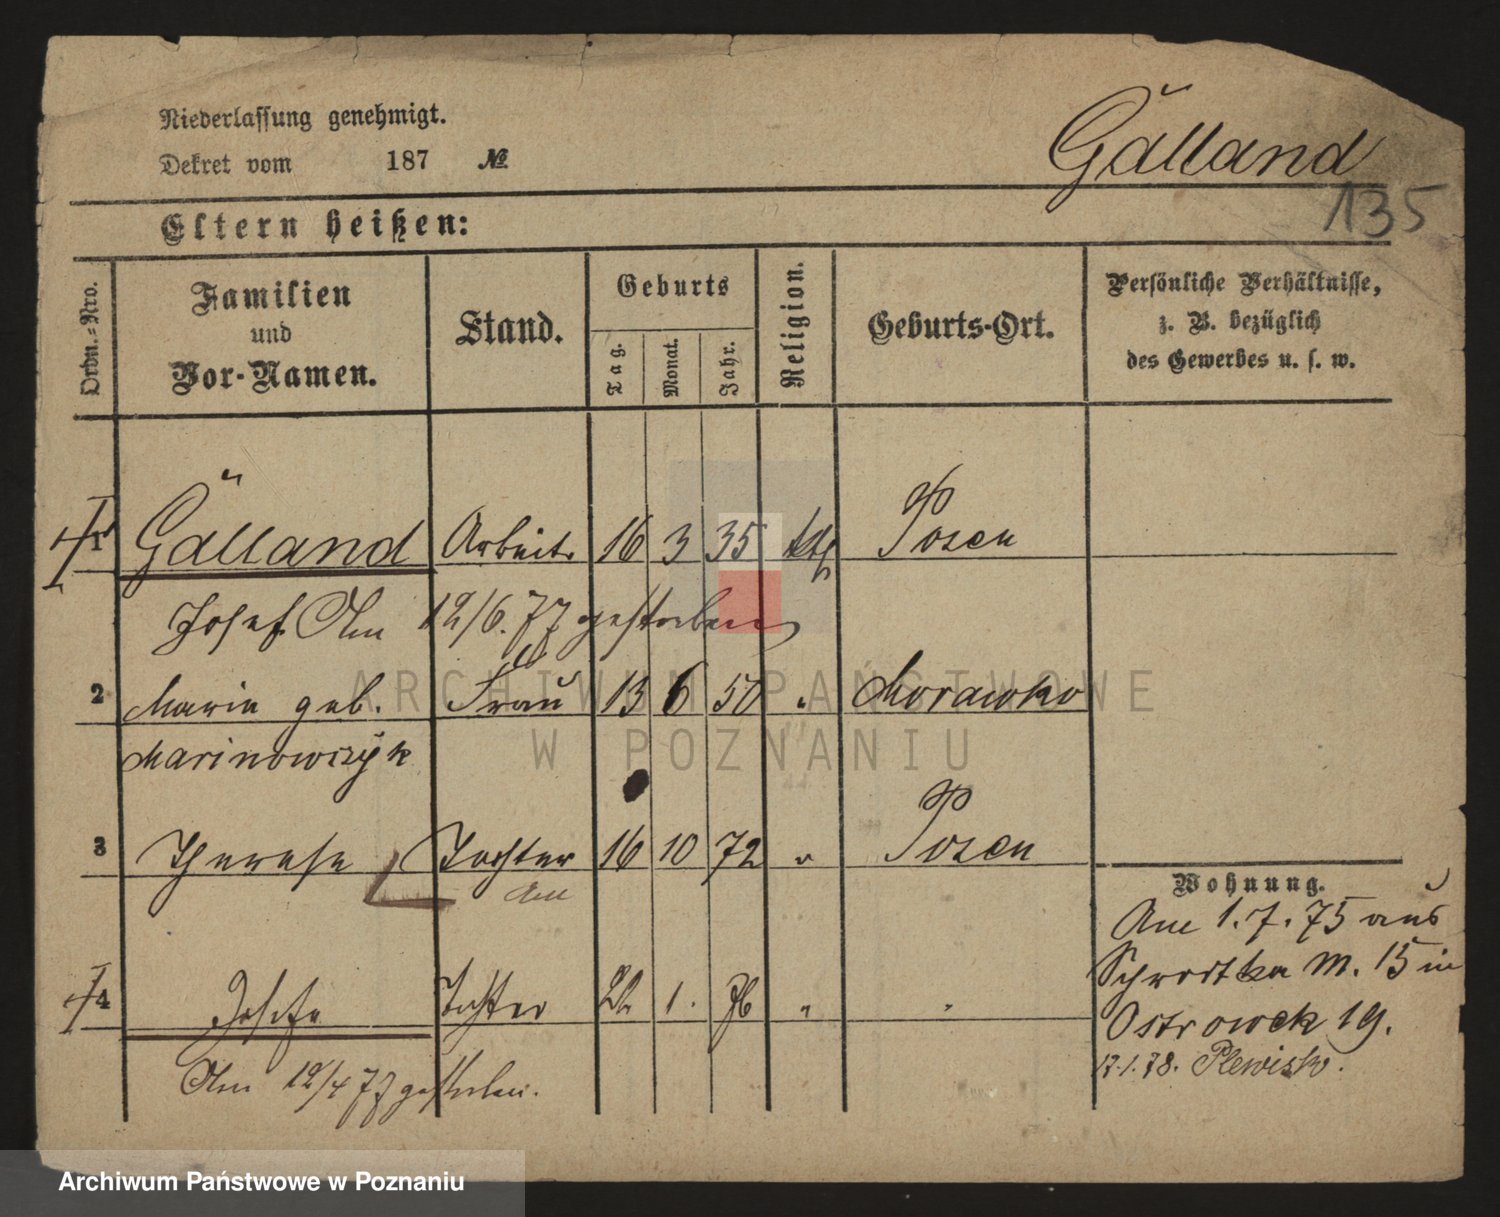 Niederlassung genehmigt.
Dekret vom 187 №
Gälland
135
Eltern heißen:
Ordn.-Nro.
Familien und Vor-Namen.
Stand.
Geburts
Tag. Monat. Jahr.
Religion.
Geburts-Ort.
Persönliche Verhältnisse,
z. B. bezüglich
des Gewerbes u. s. w.
1 Gälland Arbeitr 16 3 35 kth Posen
Josef. Am 12/6.77 gestorben
2 Maria geb. Frau 13 6 50 " Morawko
Marinowczyk
3 Therese Tochter 16 10 72 " Posen
4 Josefa Tochter 22 1. 76 " "
Am 12/4 77 gestorben.
Wohnung.
Am 1.7.75 aus
Schrodka M. 15 in
Ostrowek 19.
17.1.78. Plewisk.
ARCHIWUM PAŃSTWOWE
W POZNANIU
Archiwum Państwowe w Poznaniu